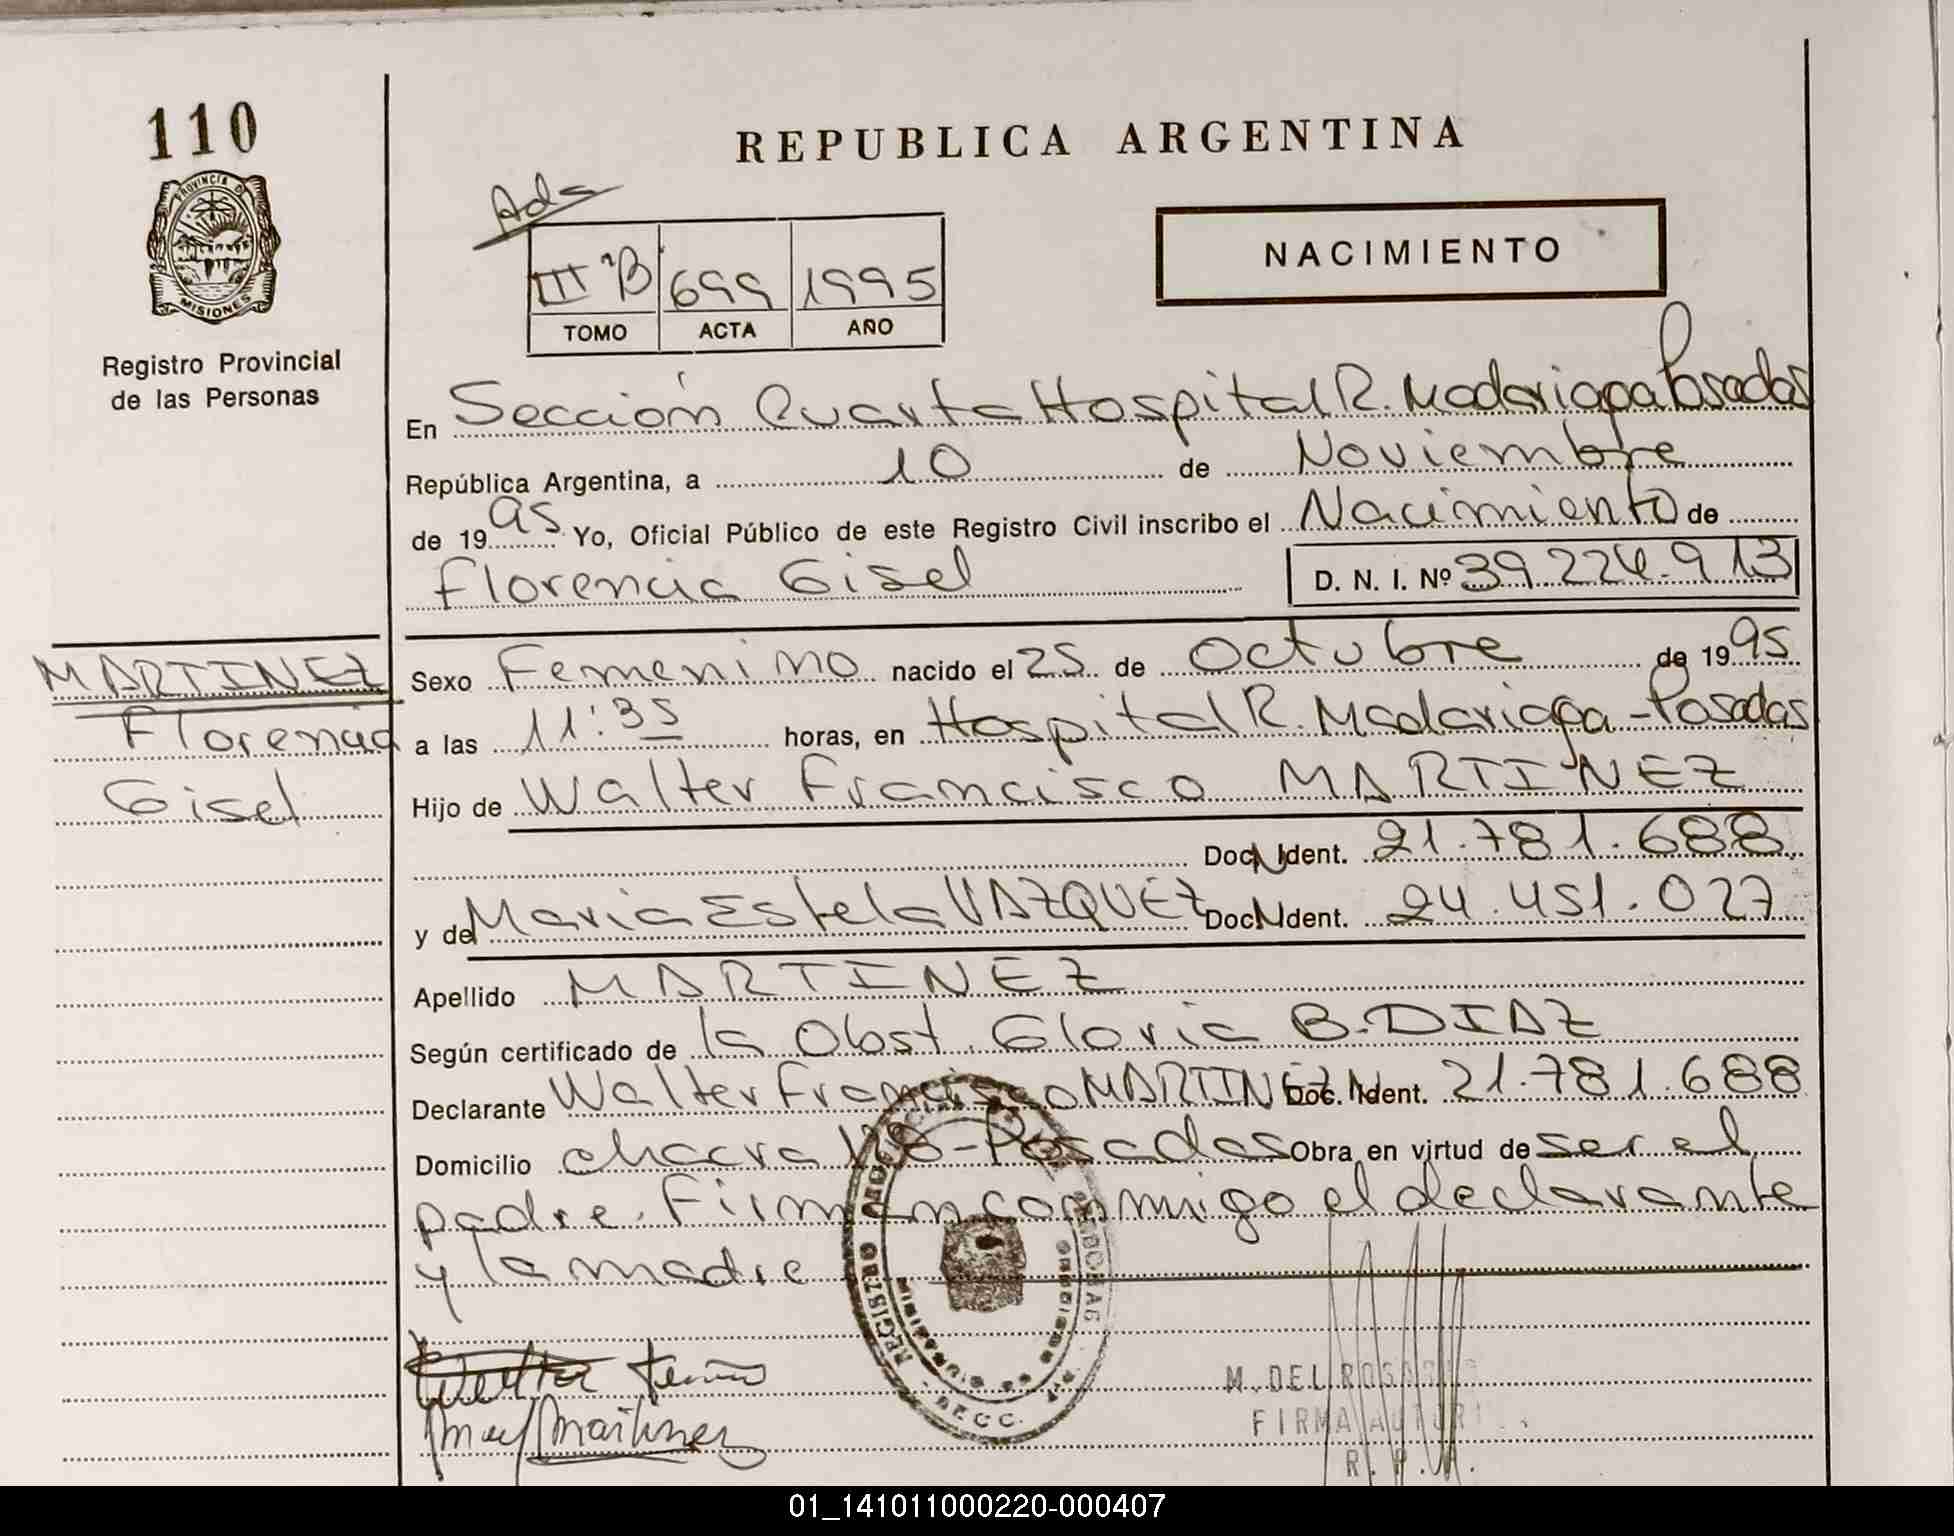 110
PROVINCIA DE
MISIONES
Registro Provincial
de las Personas
REPUBLICA ARGENTINA
NACIMIENTO
Ads
III "B" 699 1995
TOMO ACTA AÑO
En Sección Cuarta Hospital R. Madariaga Posadas
República Argentina, a 10 de Noviembre
de 1995 Yo, Oficial Público de este Registro Civil inscribo el Nacimiento de
Florencia Gisel D. N. I. Nº 39.224.913
MARTINEZ
Florencia
Gisel
Sexo Femenino nacido el 25 de Octubre de 1995
a las 11:35 horas, en Hospital R. Madariaga - Posadas
Hijo de Walter Francisco MARTINEZ
Doc. N Ident. 21.781.688
y de Maria Estela VAZQUEZ Doc. N Ident. 24.451.027
Apellido MARTINEZ
Según certificado de la Obst. Gloria B. DIAZ
Declarante Walter Francisco MARTINEZ Doc. N Ident. 21.781.688
Domicilio chacra 128 - Posadas Obra en virtud de ser el
padre. Firman conmigo el declarante
y la madre
REGISTRO
Martinez
M. DEL ROSARIO
FIRMA AUTORI
R. P.
01_141011000220-000407